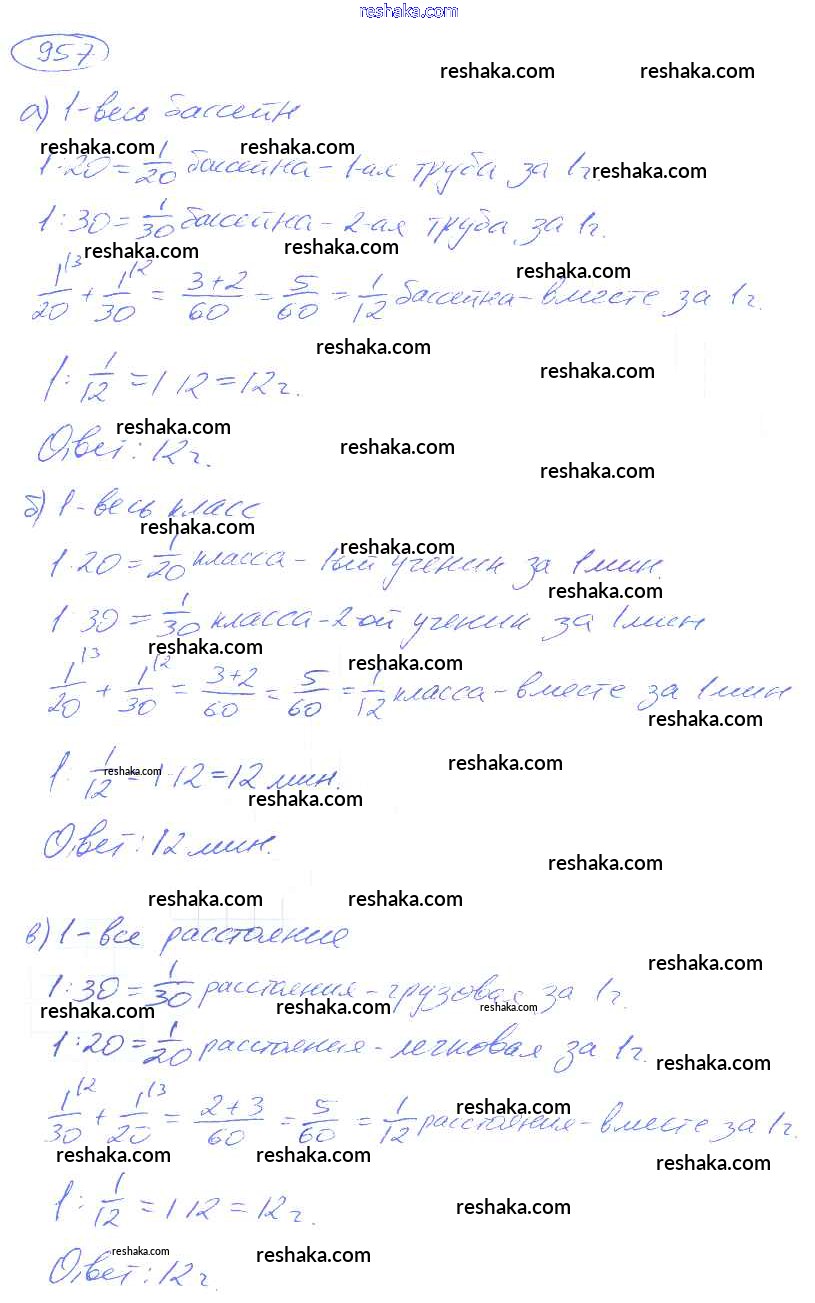 reshaka.com
957
reshaka.com reshaka.com
а) 1-весь бассейн
reshaka.com reshaka.com
1:20 = 1/20 бассейна - 1-ая труба за 1ч. reshaka.com
1:30 = 1/30 бассейна - 2-ая труба за 1ч.
reshaka.com reshaka.com
reshaka.com
1/20 |3 + 1/30 |2 = 3+2/60 = 5/60 = 1/12 бассейна - вместе за 1ч.
reshaka.com
1 : 1/12 = 1·12 = 12ч.
reshaka.com
reshaka.com
Ответ: 12ч.
reshaka.com
reshaka.com
б) 1-весь класс
reshaka.com
reshaka.com
1:20 = 1/20 класса - 1ый ученик за 1мин.
reshaka.com
1:30 = 1/30 класса - 2-ой ученик за 1мин
reshaka.com
reshaka.com
1/20 |3 + 1/30 |2 = 3+2/60 = 5/60 = 1/12 класса - вместе за 1мин
reshaka.com
reshaka.com
1 : 1/12 = 1·12 = 12 мин.
reshaka.com
reshaka.com
Ответ: 12 мин.
reshaka.com
reshaka.com reshaka.com
в) 1-все расстояние
reshaka.com
1:30 = 1/30 расстояния - грузовая за 1ч.
reshaka.com reshaka.com reshaka.com
1:20 = 1/20 расстояния - легковая за 1ч.
reshaka.com
1/30 |2 + 1/20 |3 = 2+3/60 = 5/60 = 1/12 расстояния - вместе за 1ч.
reshaka.com
reshaka.com reshaka.com reshaka.com
1 : 1/12 = 1·12 = 12ч.
reshaka.com
reshaka.com reshaka.com
Ответ: 12ч.